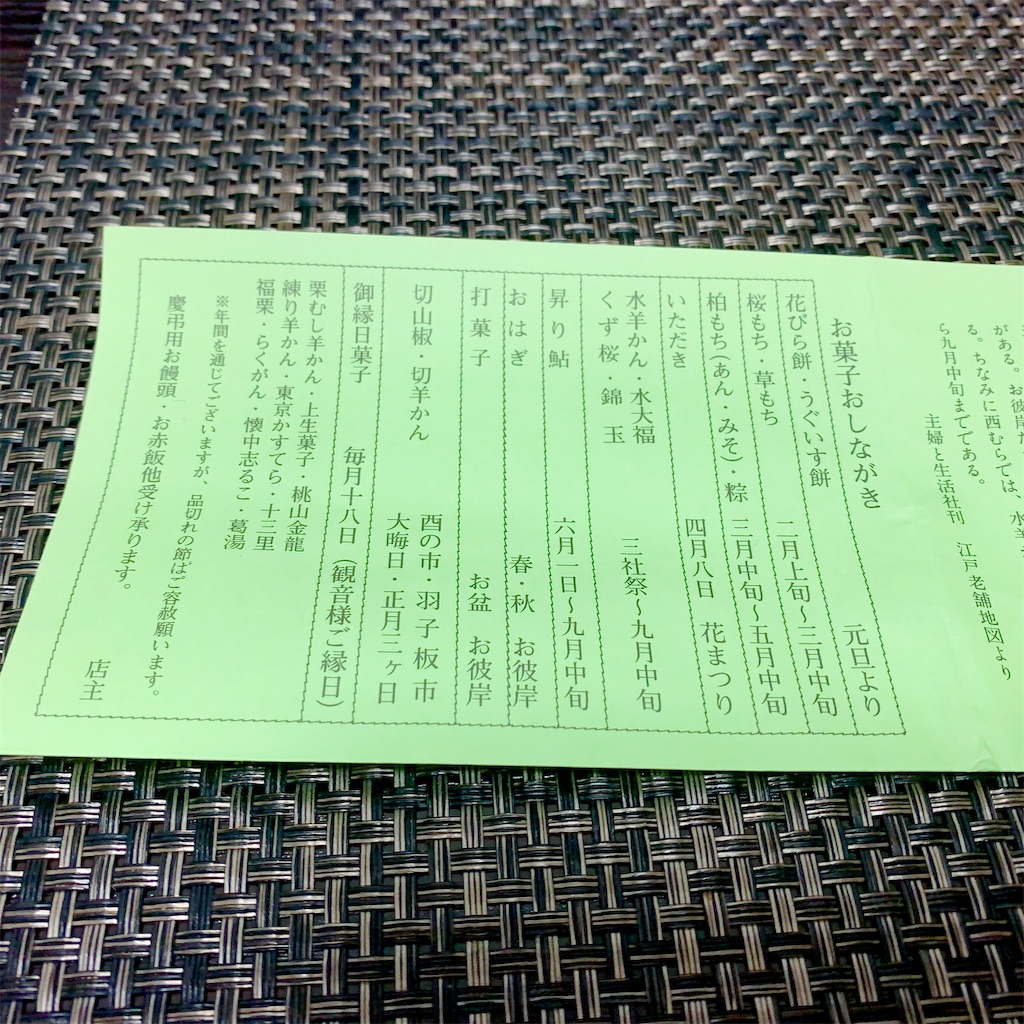 がある。お彼岸だ
る。ちなみに西むらでは、水羊
ら九月中旬までである。
主婦と生活社刊　江戸老舗地図より
お菓子おしながき
花びら餅・うぐいす餅　元旦より
桜もち・草もち　二月上旬〜三月中旬
柏もち(あん・みそ)・粽　三月中旬〜五月中旬
いただき　四月八日　花まつり
水羊かん・水大福
くず桜・錦玉　三社祭〜九月中旬
昇り鮎　六月一日〜九月中旬
おはぎ　春・秋　お彼岸
打菓子　お盆　お彼岸
切山椒・切羊かん　酉の市・羽子板市
大晦日・正月三ヶ日
御縁日菓子　毎月十八日(観音様ご縁日)
栗むし羊かん・上生菓子・桃山金龍
練り羊かん・東京かすてら・十三里
福栗・らくがん・懐中志るこ・葛湯
※年間を通じてございますが、品切れの節はご容赦願います。
慶弔用お饅頭・お赤飯他受け承ります。
店主